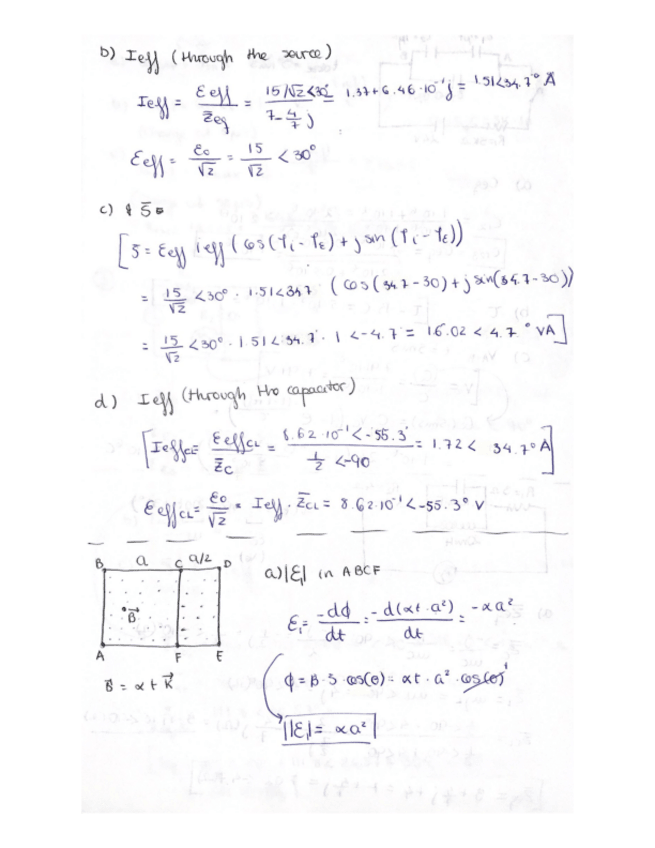 b) Ieff (through the source)
Ieff = Eeff / Z̄eq = 15/√2 <30° / 7 - 4/7 j = 1.37 + 6.46·10⁻¹j = 1.51<34.7° A
Eeff = ε₀/√2 = 15/√2 < 30°
c) S̄
[S̄ = Eeff Ieff (cos(φi - φε) + j sin(φi - φε))
= 15/√2 <30° · 1.51<34.7 (cos(34.7-30) + j sin(34.7-30))
= 15/√2 <30° · 1.51<34.7 · 1<-4.7 = 16.02 < 4.7° VA]
d) Ieff (through the capacitor)
[IeffCL = EeffCL / Z̄C = 8.62·10⁻¹<-55.3 / 1/2 <-90 = 1.72 < 34.7° A]
EeffCL = ε₀/√2 = Ieff · Z̄CL = 8.62·10⁻¹<-55.3° V
B a C a/2 D
B⃗
A F E
B⃗ = αt K⃗
a) |ε₁| in ABCF
ε₁ = -dϕ/dt = -d(αt·a²)/dt = -αa²
ϕ = B·S·cos(θ) = αt·a²·cos(θ)¹
||ε₁| = αa²|